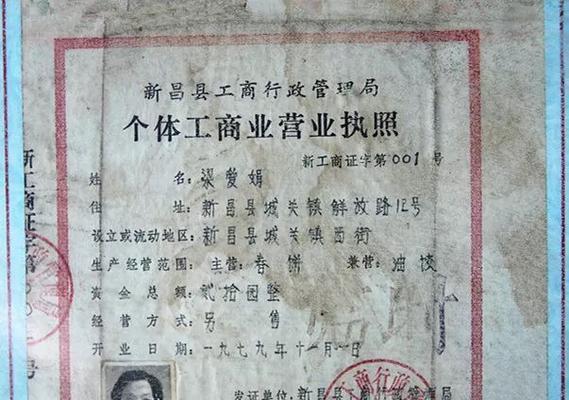 新昌县工商行政管理局
个体工商业营业执照
新工商证字第001号
姓名：梁爱娟
住址：新昌县城关镇解放路12号
设立或流动地区：新昌县城关镇西街
生产经营范围：主营：春饼 兼营：油饺
资金总额：贰拾园整
经营方式：另售
开业日期：一九七九年十一月一日
发证单位：新昌县工商行政管理局
新工商证字第
号
工商行政